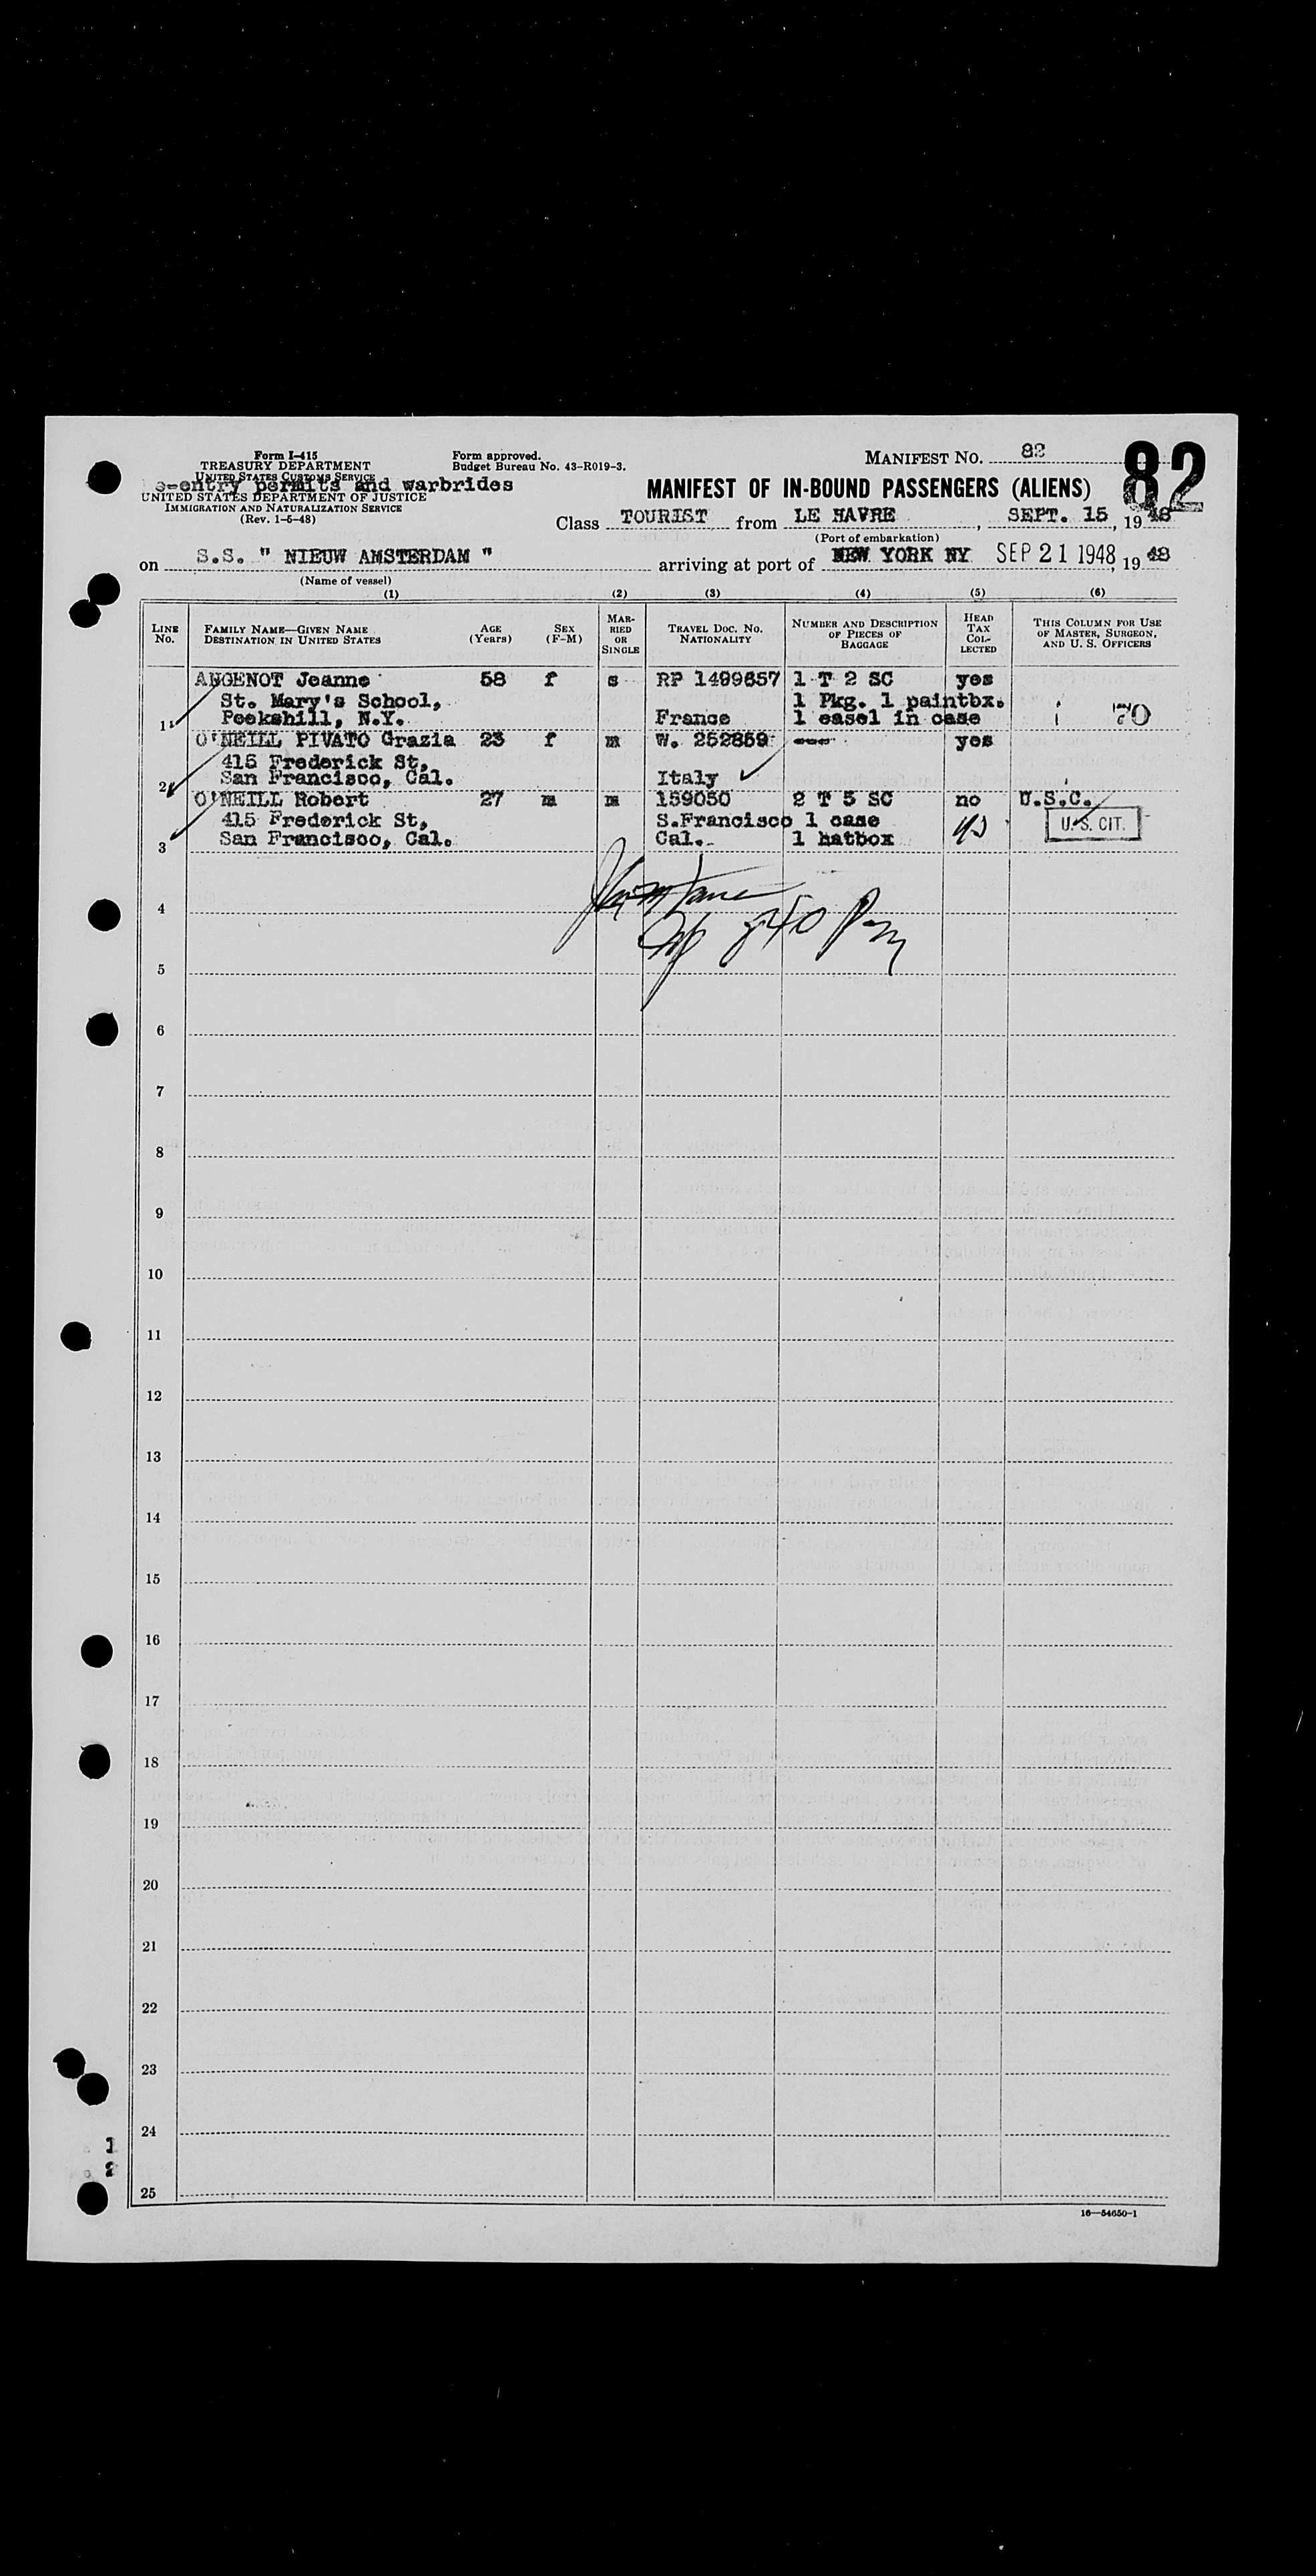 Form I-415
TREASURY DEPARTMENT
UNITED STATES CUSTOMS SERVICE
e-entry permits and warbrides
UNITED STATES DEPARTMENT OF JUSTICE
IMMIGRATION AND NATURALIZATION SERVICE
(Rev. 1-6-48)
Form approved.
Budget Bureau No. 43-R019-3.
MANIFEST NO. 82
82
MANIFEST OF IN-BOUND PASSENGERS (ALIENS)
Class TOURIST from LE HAVRE, SEPT. 15, 1948
(Port of embarkation)
on S.S. " NIEUW AMSTERDAM " arriving at port of NEW YORK NY SEP 21 1948, 1948
(Name of vessel)
(1) (2) (3) (4) (5) (6)
LINE NO. FAMILY NAME—GIVEN NAME DESTINATION IN UNITED STATES AGE (Years) SEX (F-M) MARRIED OR SINGLE TRAVEL DOC. NO. NATIONALITY NUMBER AND DESCRIPTION OF PIECES OF BAGGAGE HEAD TAX COLLECTED THIS COLUMN FOR USE OF MASTER, SURGEON, AND U. S. OFFICERS
ANGENOT Jeanne 58 f s RP 1499657 1 T 2 SC yes
St. Mary's School, 1 Pkg. 1 paintbx.
1 Peekshill, N.Y. France 1 easel in case 70
O'NEILL PIVATO Grazia 23 f m W. 252859 --- yes
415 Frederick St,
2 San Francisco, Cal. Italy
O'NEILL Robert 27 m m 159050 2 T 5 SC no U.S.C.
415 Frederick St, S.Francisco 1 case U.S. CIT.
3 San Francisco, Cal. Cal. 1 hatbox
4
240 Pm
5
6
7
8
9
10
11
12
13
14
15
16
17
18
19
20
21
22
23
24
1
2
25
16—54650-1